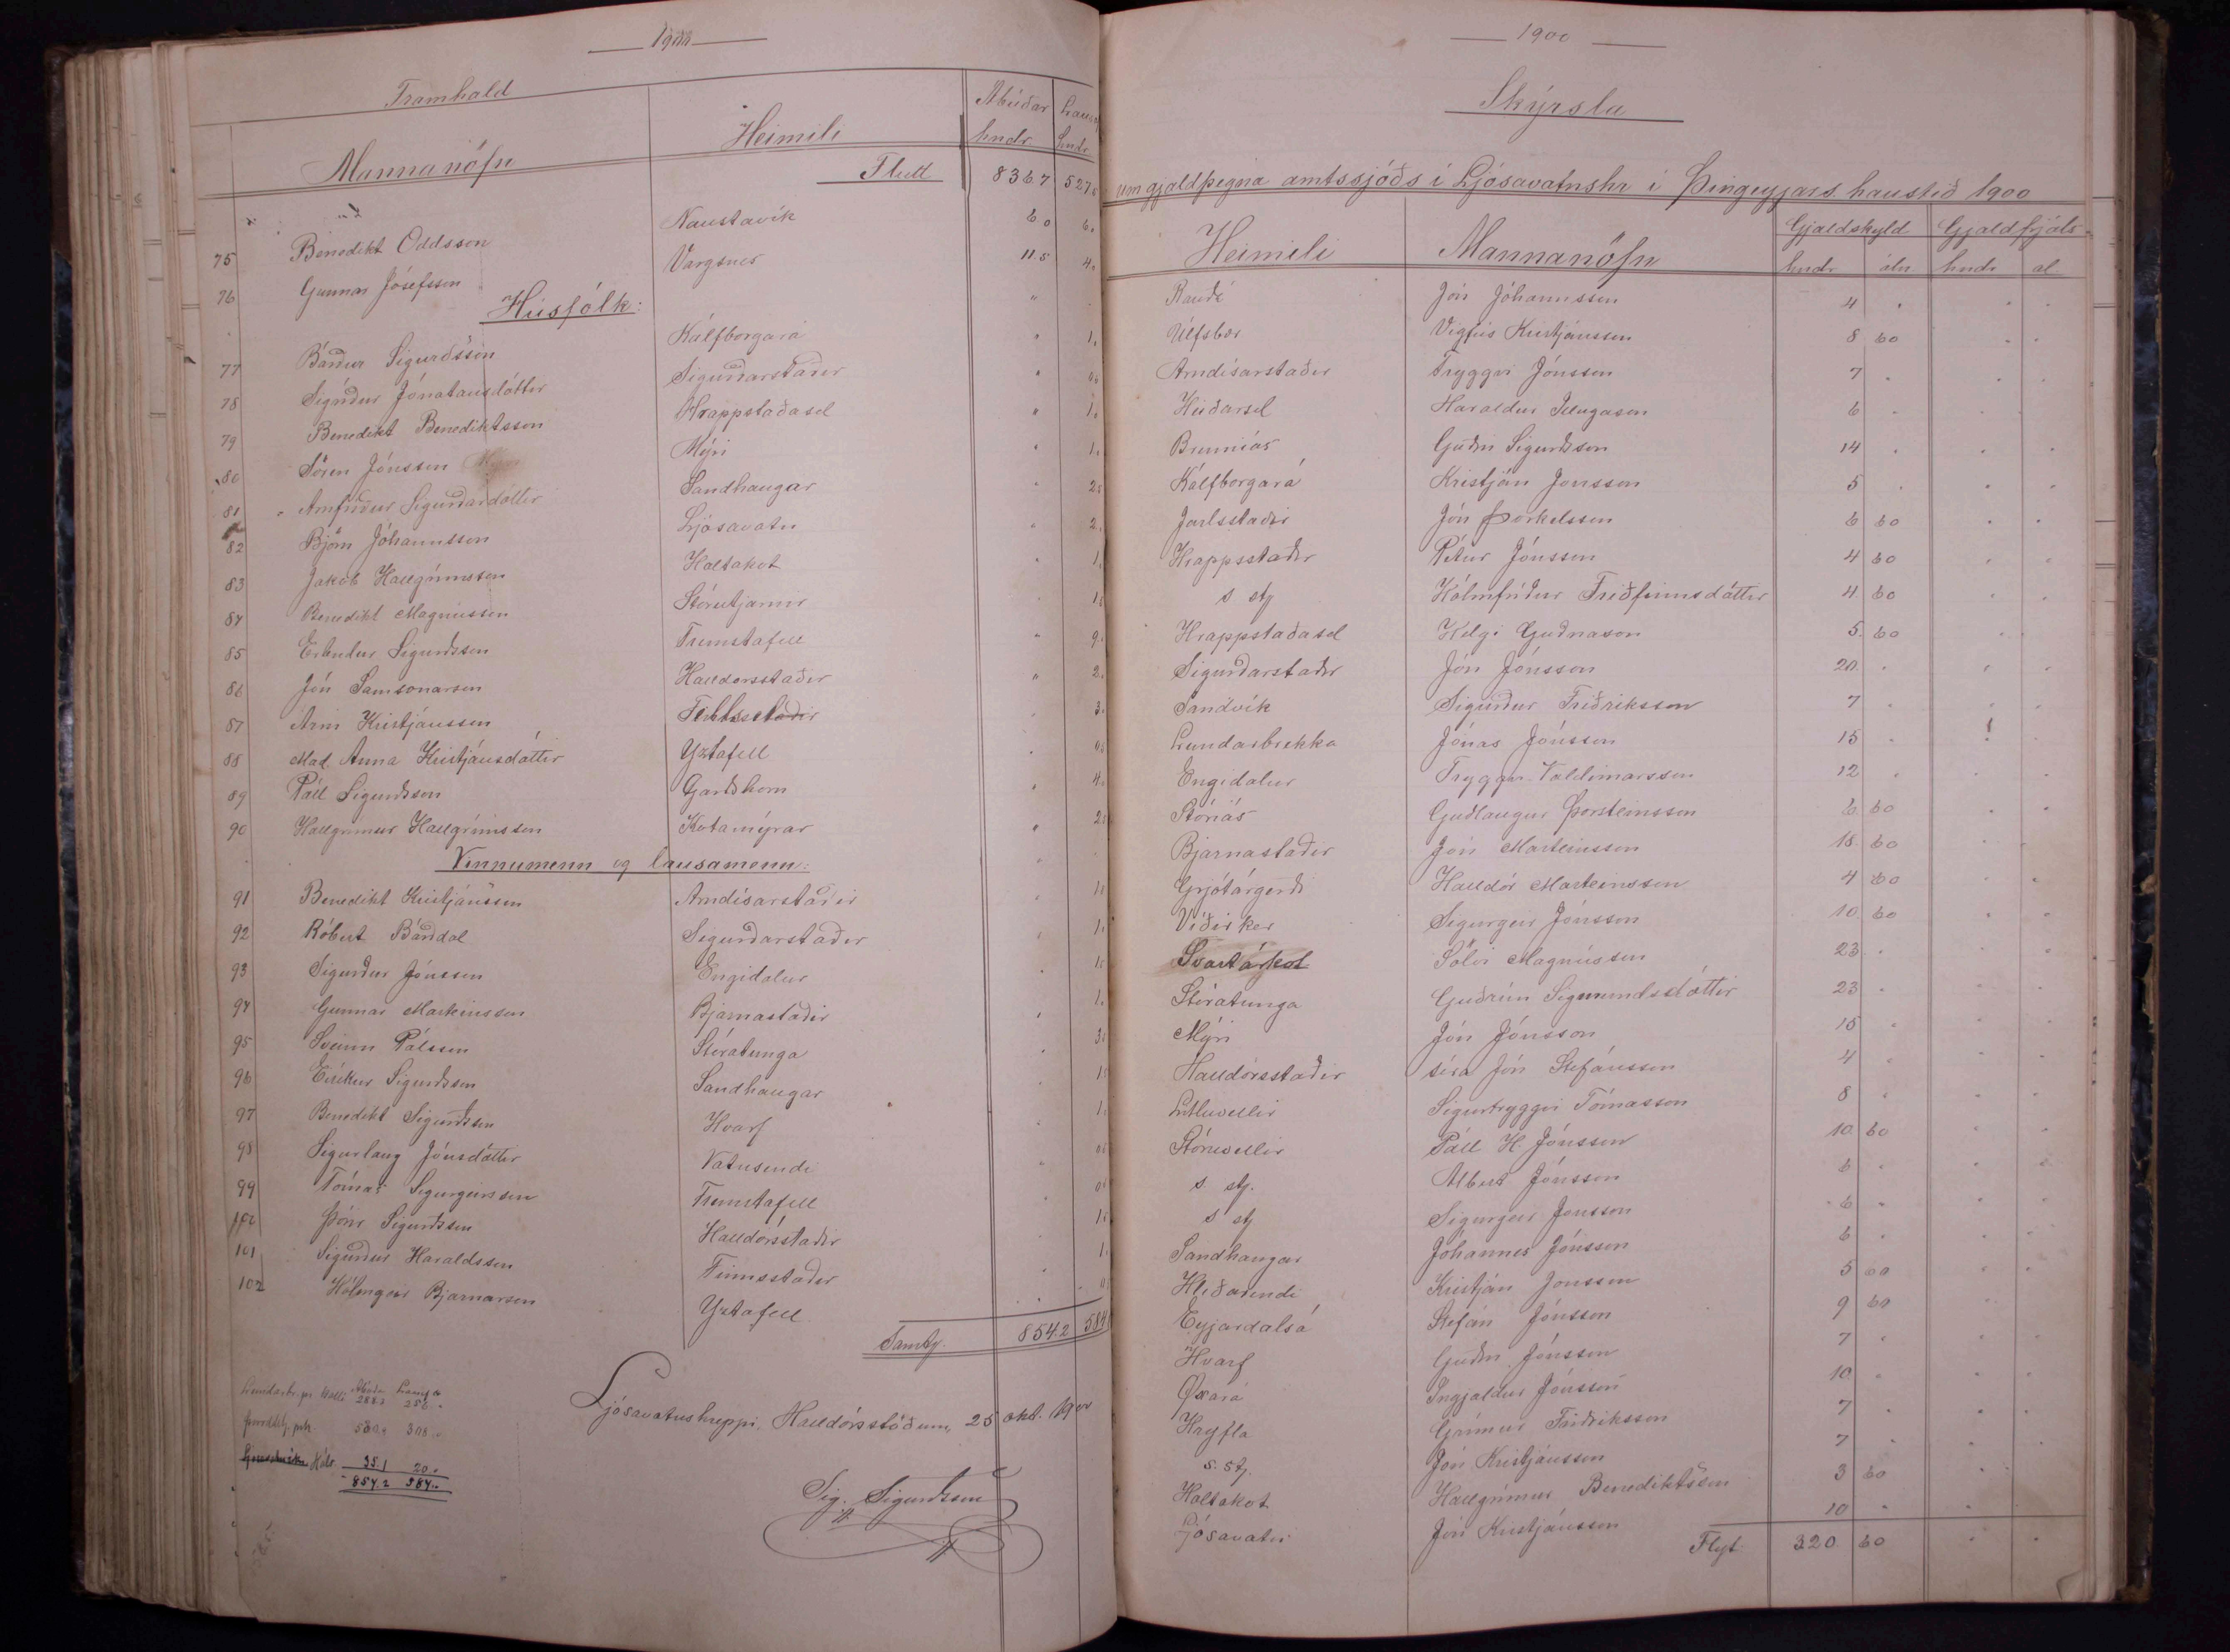 1900
Framhald
Mannanöfn Heimili Ábúðar hndr Lausafj hndr
Flutt 836.7 527.5
75 Benedikt Oddsson Naustavík 6.0 6.
76 Gunnar Jósefsson Vargsnes 11.5 4.
Húsfólk:
77 Bárður Sigurðsson Kálfborgará " 1.
78 Sigríður Jónatansdóttir Sigurðarstaðir "
79 Benedikt Benediktsson Hrappstaðasel " 1.
80 Sören Jónsson Mýri " 1.
81 Arnfríður Sigurðardóttir Sandhaugar " 2.5
82 Björn Jóhannsson Ljósavatn " 2.
83 Jakob Hallgrímsson Holtakot " 1.
84 Benedikt Magnússon Stórutjarnir " 1.
85 Erlendur Sigurðsson Fremstafell " 9.
86 Jón Samsonarson Halldórsstaðir " 2.
87 Árni Kristjánsson Finnsstaðir " 3.
88 Mad. Anna Kristjánsdóttir Yztafell " 0.5
89 Páll Sigurðsson Garðshorn " 4.
90 Hallgrímur Hallgrímsson Kotamýrar " 2.5
Vinnumenn og lausamenn:
91 Benedikt Kristjánsson Arndísarstaðir " 1.
92 Róbert Bárdal Sigurðarstaðir " 1.
93 Sigurður Jónsson Engidalur " 1.
94 Gunnar Marteinsson Bjarnastaðir " 1.
95 Sveinn Pálsson Stóratunga " 3.
96 Eiríkur Sigurðsson Sandhaugar " 1.
97 Benedikt Sigurðsson Hvarf " 1.
98 Sigurlaug Jónsdóttir Vatnsendi " 0.5
99 Tómas Sigurgeirsson Fremstafell " 0.5
100 Þórir Sigurðsson Halldórsstaðir " 1.
101 Sigurður Haraldsson Finnsstaðir " 1.
102 Hólmgeir Bjarnarson Yztafell "
Samtg. 854.2 584
Ljósavatnshreppi, Halldórsstöðum, 25 okt. 1900
Sig. Sigurðsson
35.1 20.
854.2 584.
1900
Skýrsla
um gjaldþegna amtssjóðs í Ljósavatnshr í Þingeyjars. haustið 1900
Heimili Mannanöfn Gjaldskyld Gjaldfrjáls
hndr áln hndr al
Rauðá Jón Jóhannsson 4 "
Úlfsbær Vigfús Kristjánsson 8 60
Arndísarstaðir Tryggvi Jónsson 7 "
Heiðarsel Haraldur Illugason 6 "
Brunnás Guðni Sigurðsson 14 "
Kálfborgará Kristján Jónsson 5 "
Jarlsstaðir Jón Þorkelsson 6 60
Hrappsstaðir Pétur Jónsson 4 60
s stj Hólmfríður Friðfinnsdóttir 4 60
Hrappstaðasel Helgi Guðnason 5. 60
Sigurðarstaðir Jón Jónsson 20. "
Sandvík Sigurður Friðriksson 7 "
Lundarbrekka Jónas Jónsson 15 "
Engidalur Tryggvi Valdimarsson 12 "
Stóriás Guðlaugur Þorsteinsson 6 60
Bjarnastaðir Jón Marteinsson 18. 60
Grjótárgerði Halldór Marteinsson 4 60
Víðirker Sigurgeir Jónsson 10 60
Svartárkot Sölvi Magnússon 23 "
Stóratunga Guðrún Sigmundsdóttir 23 "
Mýri Jón Jónsson 15 "
Halldórsstaðir síra Jón Stefánsson 4 "
Litluvellir Sigurtryggvi Tómasson 8 "
Stóruvellir Páll H. Jónsson 10 60
s stj. Albert Jónsson 6 "
s stj Sigurgeir Jónsson 6 "
Sandhaugar Jóhannes Jónsson 6 "
Hlíðarendi Kristján Jónsson 5 60
Eyjardalsá Stefán Jónsson 9 60
Hvarf Guðni Jónsson 7 "
Öxará Ingjaldur Jónsson 10 "
Hryfla Grímur Friðriksson 7 "
s. stj. Jón Kristjánsson 7 "
Holtakot Hallgrímur Benediktsson 3 60
Ljósavatn Jón Kristjánsson 10 "
Flyt 320 60